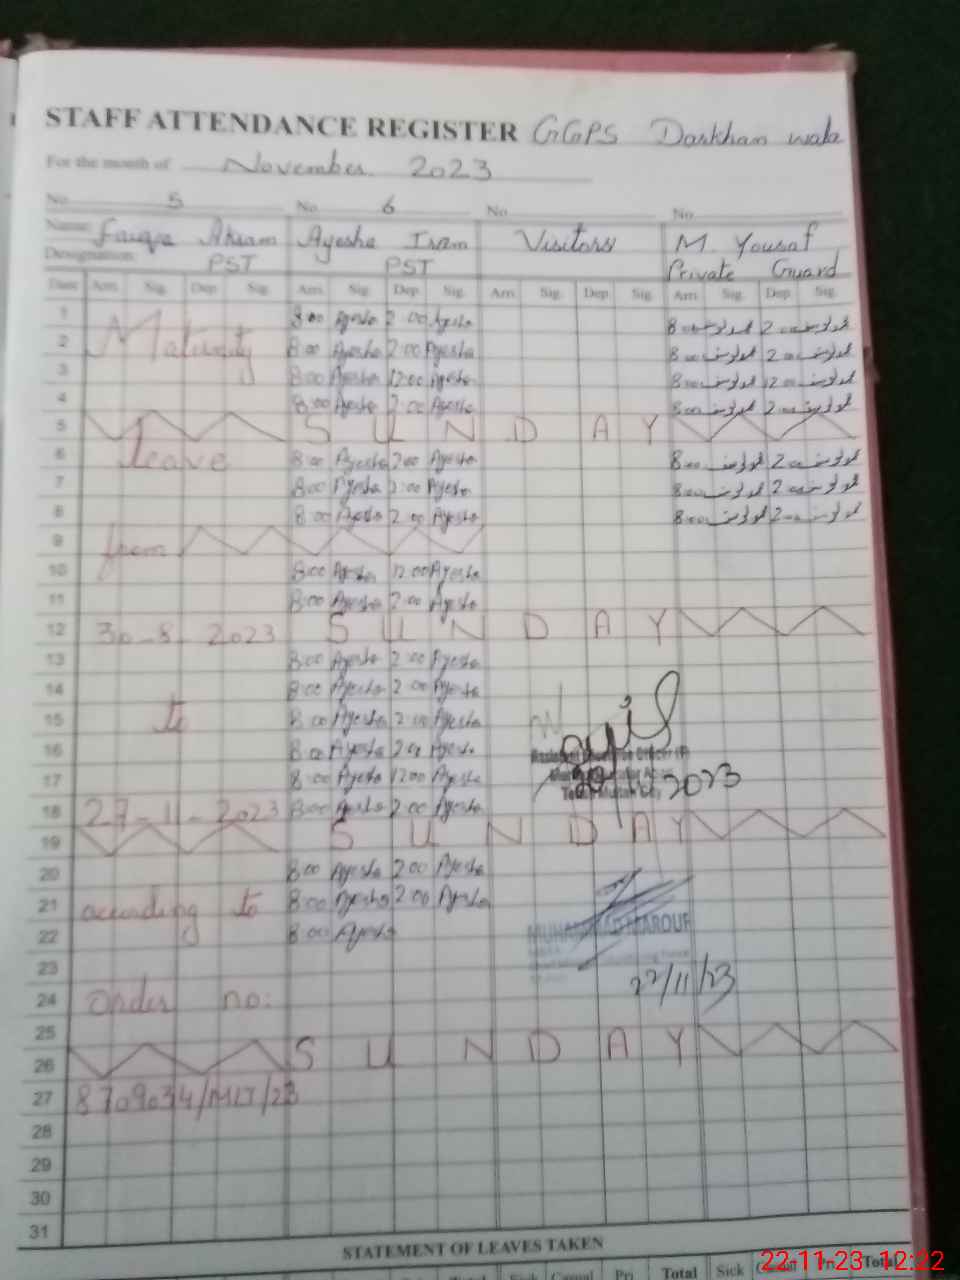 STAFF ATTENDANCE REGISTER GGPS Darkhan wala
For the month of November 2023
No. 5 No. 6 No. No.
Name: Faiqa Akram Ayesha Iram Visitors M. Yousaf
Designation: PST PST Private Guard
Date Arri. Sig. Dep. Sig. Arri. Sig. Dep. Sig. Arri. Sig. Dep. Sig. Arri. Sig. Dep. Sig.
1 8:00 Ayesha 2:00 Ayesha 8:00 محمد یوسف 2:00 محمد یوسف
2 Maternity 8:00 Ayesha 2:00 Ayesha 8:00 محمد یوسف 2:00 محمد یوسف
3 8:00 Ayesha 12:00 Ayesha 8:00 محمد یوسف 12:00 محمد یوسف
4 8:00 Ayesha 2:00 Ayesha 8:00 محمد یوسف 2:00 محمد یوسف
5 SUNDAY
6 leave 8:00 Ayesha 2:00 Ayesha 8:00 محمد یوسف 2:00 محمد یوسف
7 8:00 Ayesha 2:00 Ayesha 8:00 محمد یوسف 2:00 محمد یوسف
8 8:00 Ayesha 2:00 Ayesha 8:00 محمد یوسف 2:00 محمد یوسف
9 from
10 8:00 Ayesha 12:00 Ayesha
11 8:00 Ayesha 2:00 Ayesha
12 30-8-2023 SUNDAY
13 8:00 Ayesha 2:00 Ayesha
14 8:00 Ayesha 2:00 Ayesha
15 to 8:00 Ayesha 2:00 Ayesha
16 8:00 Ayesha 2:00 Ayesha
17 8:00 Ayesha 12:00 Ayesha 2023
18 27-11-2023 8:00 Ayesha 2:00 Ayesha
19 SUNDAY
20 8:00 Ayesha 2:00 Ayesha
21 according to 8:00 Ayesha 2:00 Ayesha
22 8:00 Ayesha MUHAMMAD MAROUF
23 22/11/23
24 order no:
25
26 SUNDAY
27 8709034/MLT/23
28
29
30
31
STATEMENT OF LEAVES TAKEN
Total Sick Casual Pri. Total
22-11-23 12:22